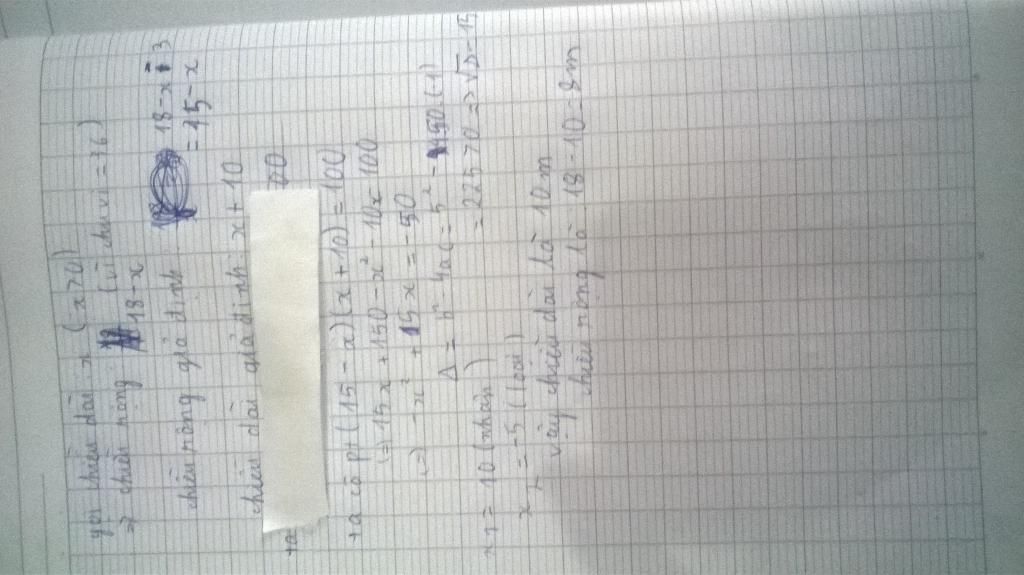 gọi chiều dài x (x>0)
=> chiều rộng 18-x (vì chu vi = 36)
chiều rộng giả định 18-x-3
= 15-x
chiều dài giả định x+10
+a
00
+a có pt (15-x)(x+10)=100
(=) 15x+150-x²-10x 100
(=) -x²+15x=-50
Δ = b² 4ac = 5² - 150.(-1)
= 225>0 => √Δ=15
x1 = 10 (nhận)
x2 = -5 (loại)
vậy chiều dài là 10m
chiều rộng là 18-10=8m